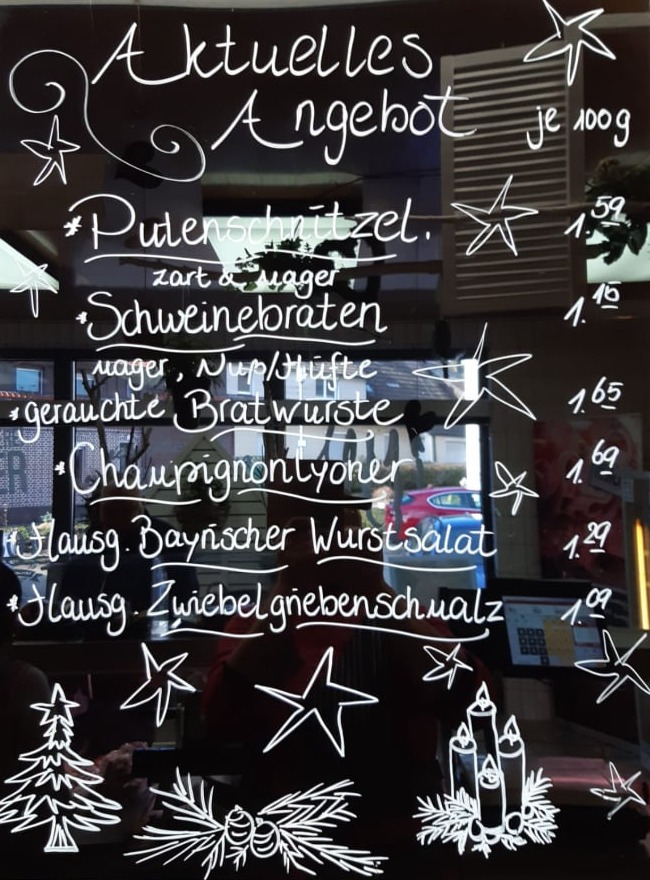 Aktuelles
Angebot je 100g
*Putenschnitzel. 1.59
zart & mager
*Schweinebraten 1.15
mager, Nuß/Hüfte
*gerauchte Bratwurste 1.65
*Champignonlyoner 1.69
*Hausg. Bayrischer Wurstsalat 1.29
*Hausg. Zwiebelgriebenschmalz 1.09